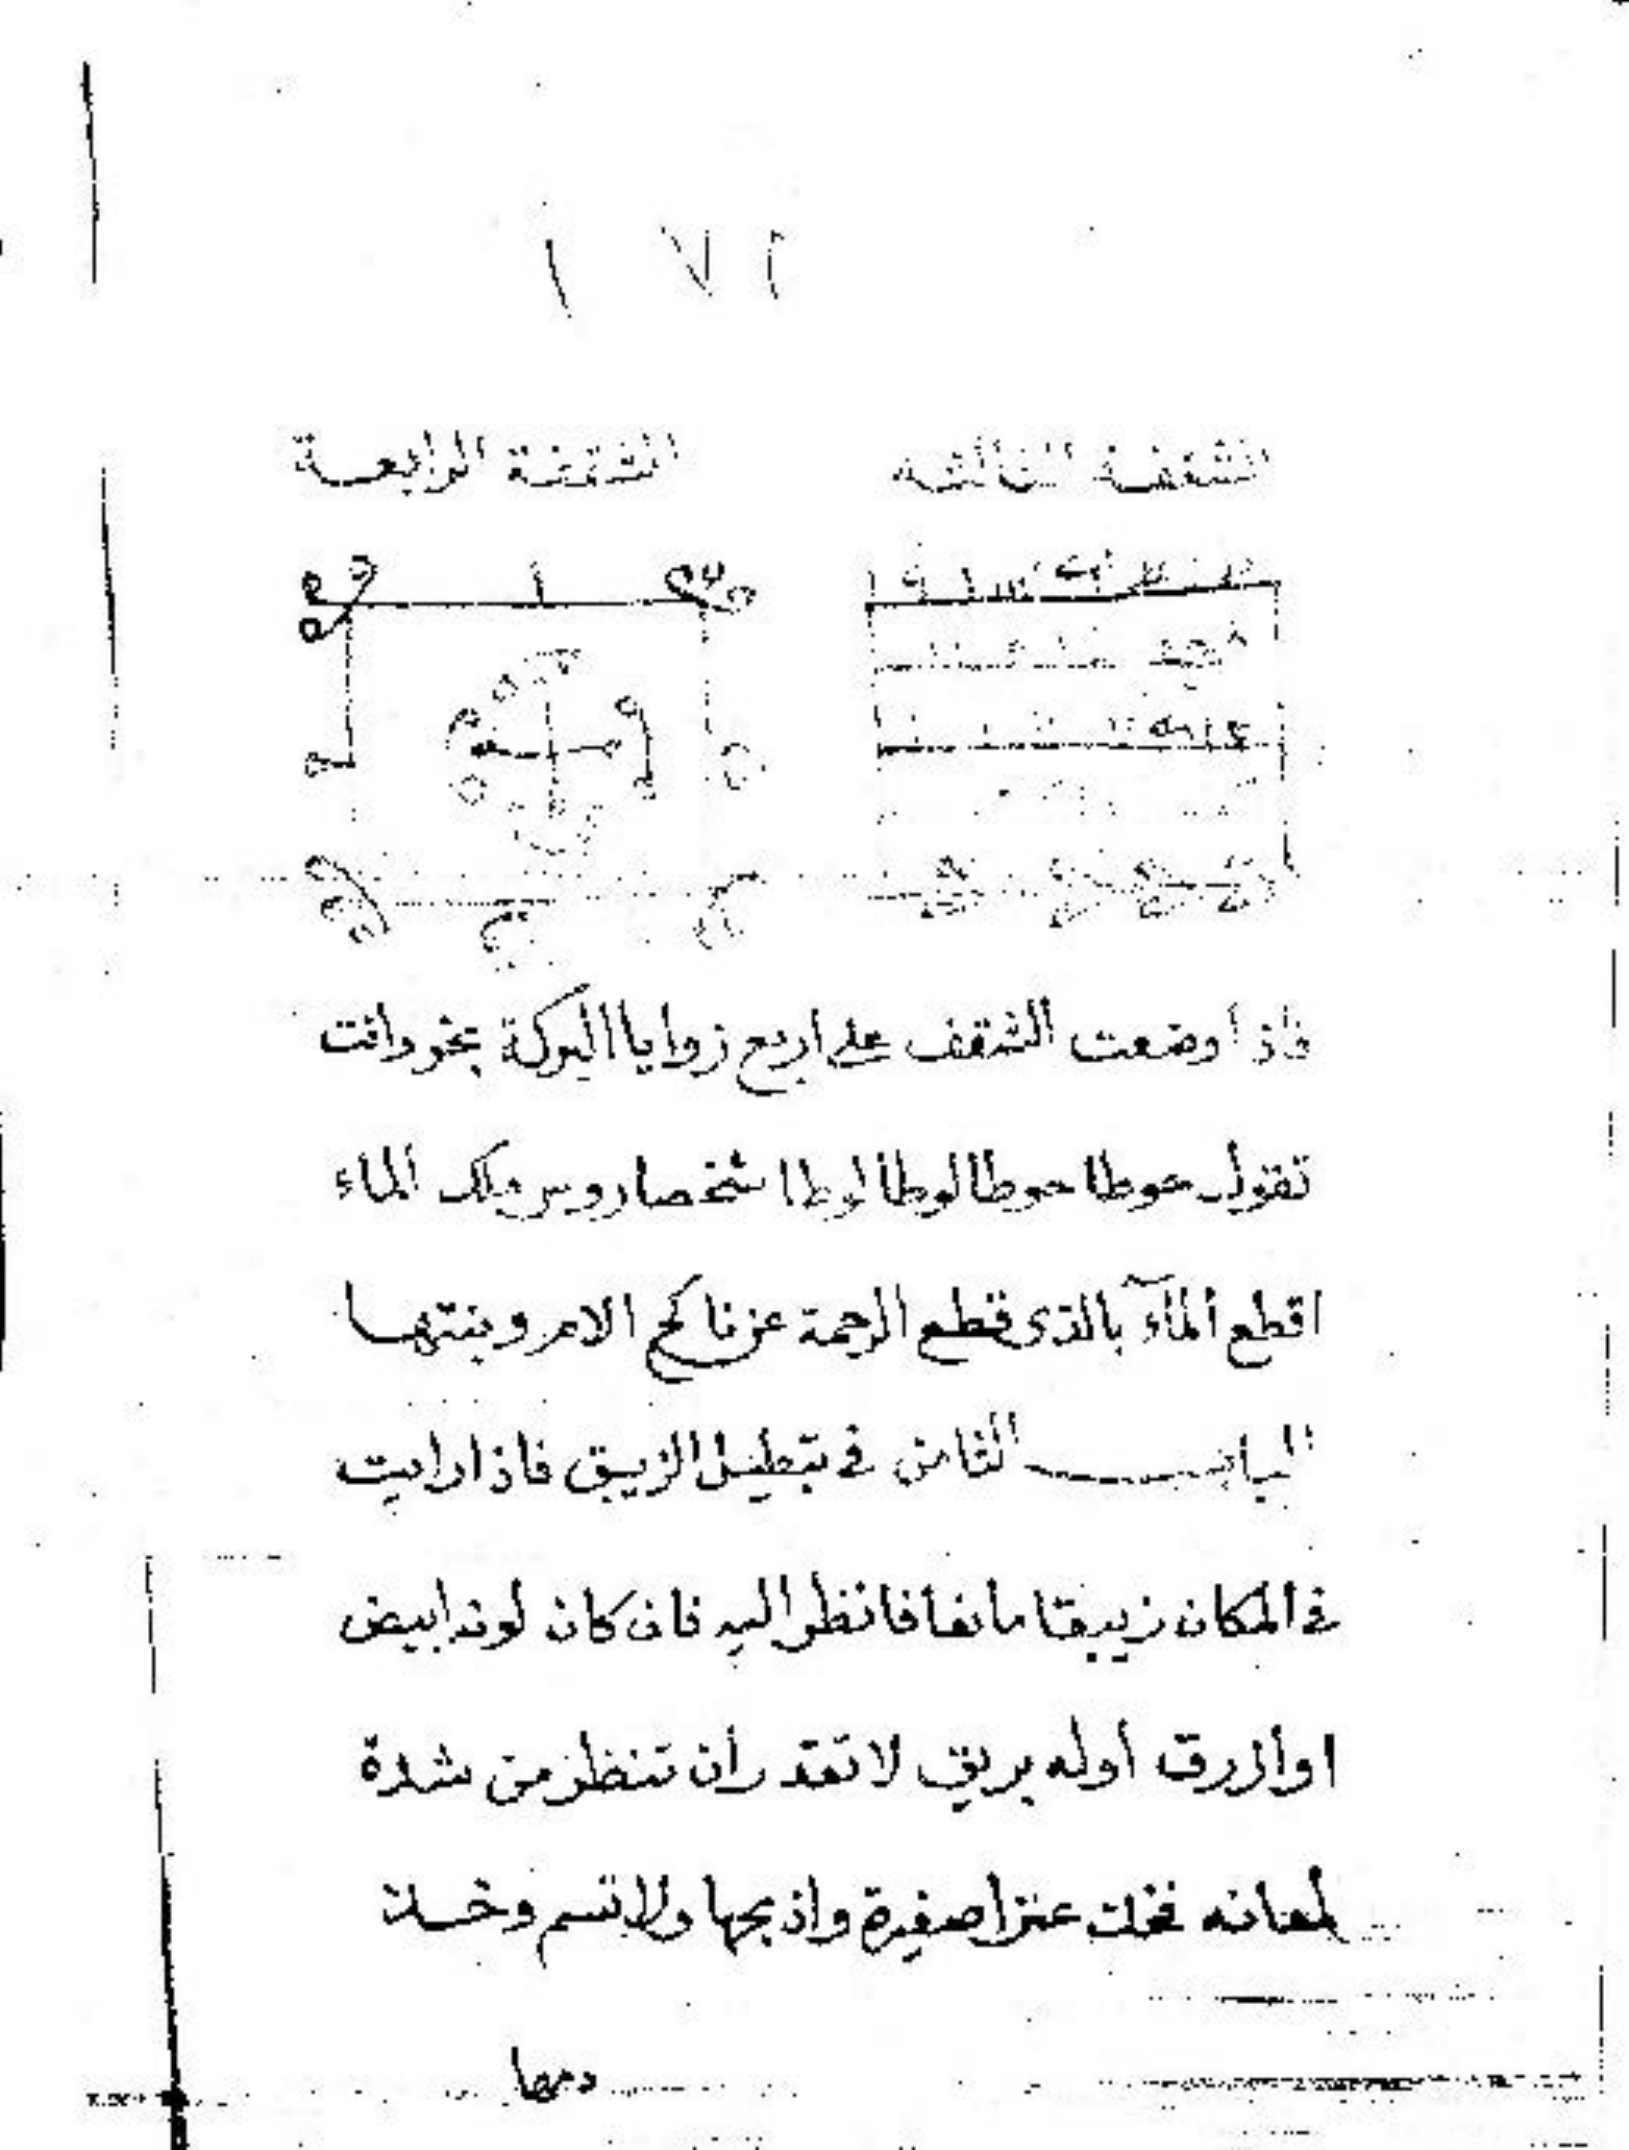 ١٧١
الشقفة الثالثه
الشقفة الرابعة
فاذا وضعت الشقف على اربع زوايا البركة بخر وانت
تقول حوطا حوطا لوطا لوطا شخصاروس ملك الماء
اقطع المآء بالذى قطع الرحمة عن ناكح الام وبنتها
الباب الثامن فى تبطيل الزيبق فاذا رايت
فى المكان زيبقا مانعا فانظر اليه فان كان لونه ابيض
او أزرق أوله بريق لا تقدر أن تنظر من شدة
لمعانه فخذ عنزا صغيرة واذبحها ولا تسم وخذ
دمها